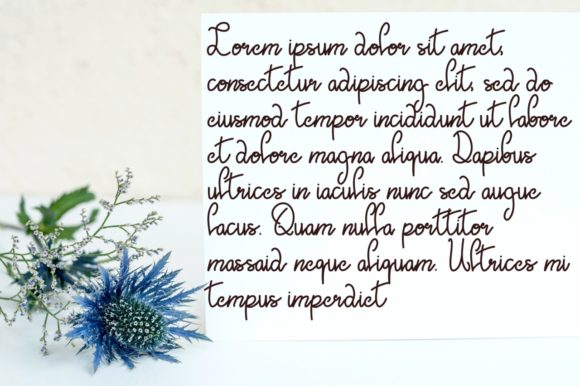 Lorem ipsum dolor sit amet,
consectetur adipiscing elit, sed do
eiusmod tempor incididunt ut labore
et dolore magna aliqua. Dapibus
ultrices in iaculis nunc sed augue
lacus. Quam nulla porttitor
massaid neque aliquam. Ultrices mi
tempus imperdiet